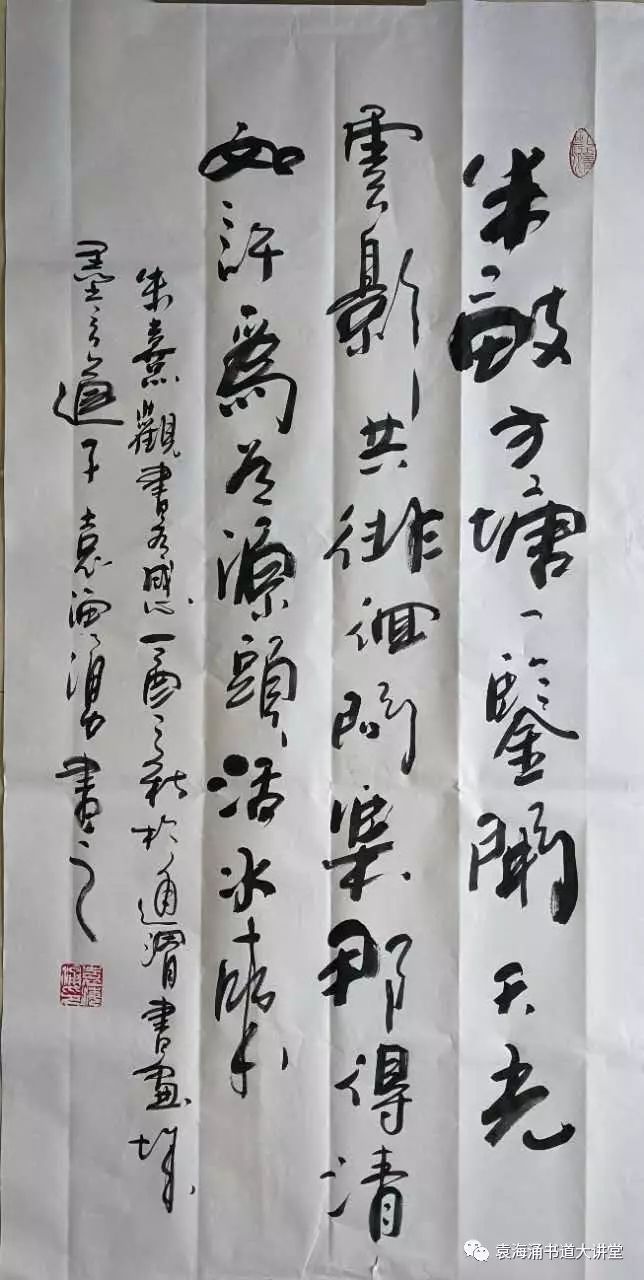 半畝方塘一鑒開天光
雲影共徘徊問渠那得清
如許爲有源頭活水來
朱熹觀書有感丁酉之秋於通渭書畫城
墨之子袁海湧書之
袁海涌书道大讲堂